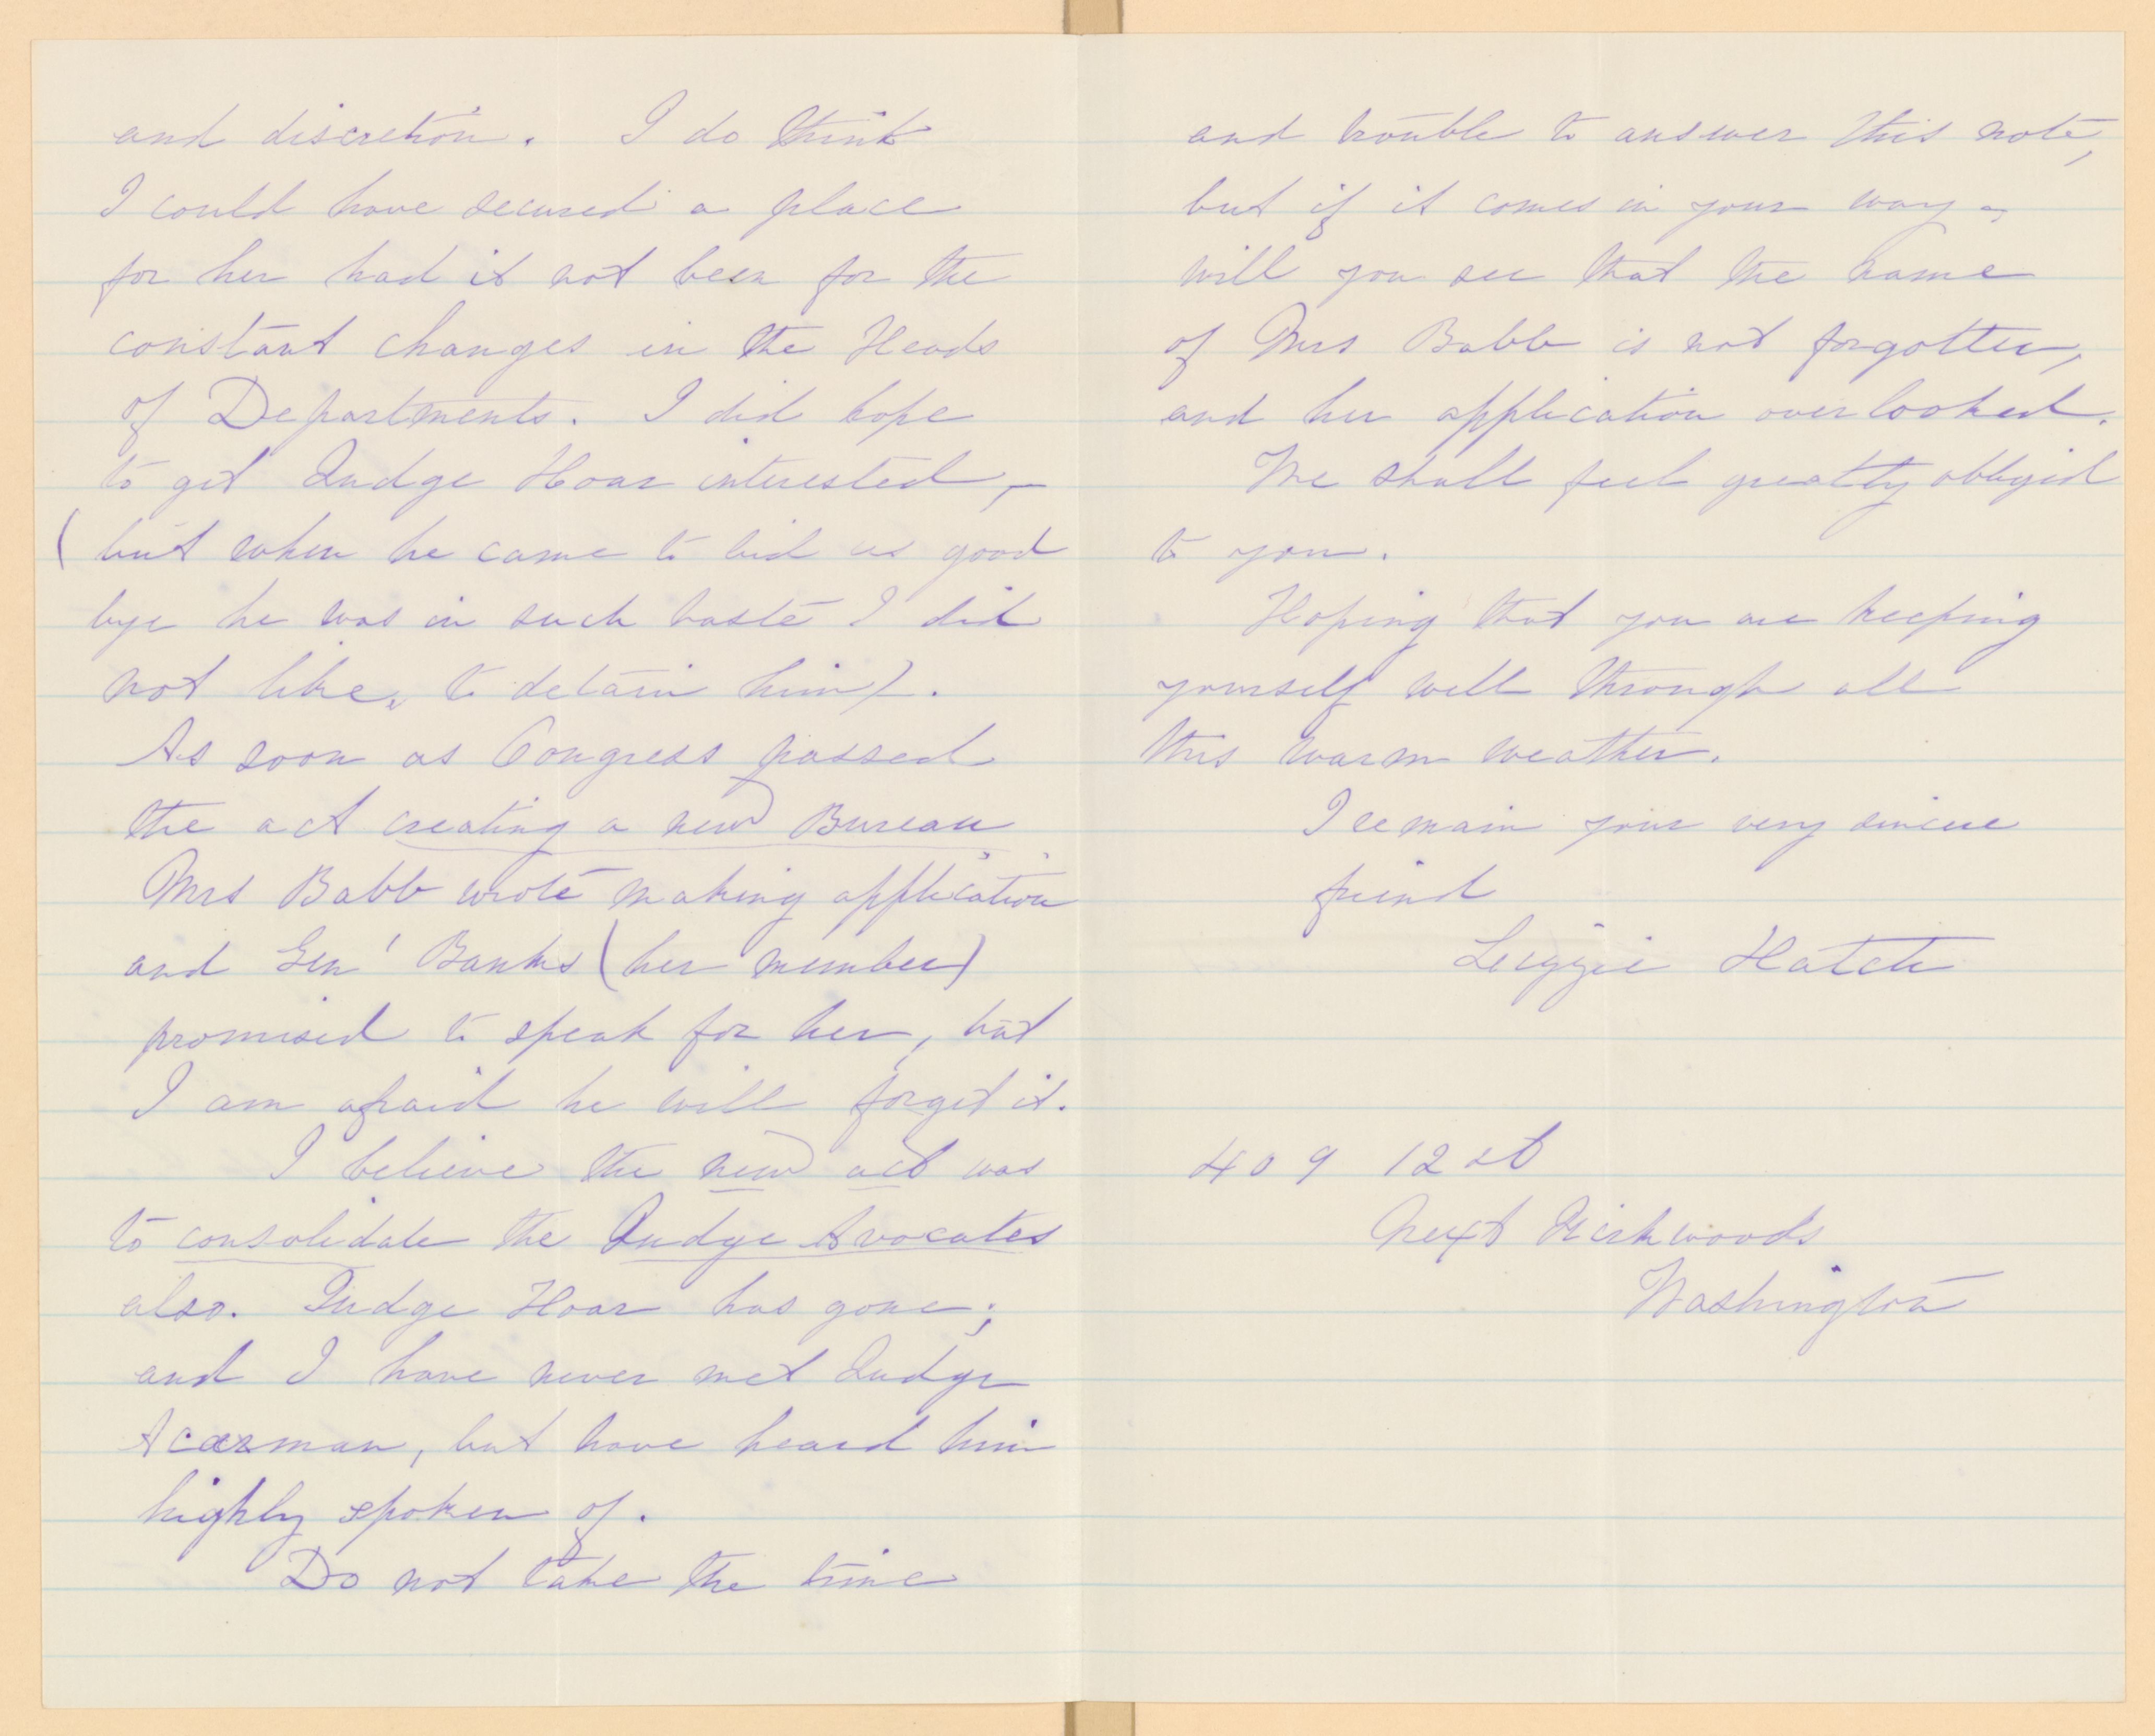 and discretion. I do think
I could have secured a place
for her had it not been for the
constant changes in the Heads
of Departments. I did hope
to get Judge Hoar interested,—
(but when he came to bid us good
bye he was in such haste I did
not like, to detain him).
As soon as Congress passed
the act creating a new Bureau
Mrs Babb wrote making application
and Gen' Banks (her member)
promised to speak for her, but
I am afraid he will forget it.
I believe the new act was
to consolidate the Judge Avocates
also. Judge Hoar has gone;
and I have never met Judge
Acarman, but have heard him
highly spoken of.
Do not take the time
and trouble to answer this note,
but if it comes in your way -,
will you see that the name
of Mrs Babb is not forgotten,
and her application overlooked.
We shall feel greatly obliged
to you.
Hoping that you are keeping
yourself well through all
this warm weather.
I remain your very sincere
friend
Lizzie Hatch
409 12 st
Next Kirkwoods
Washington